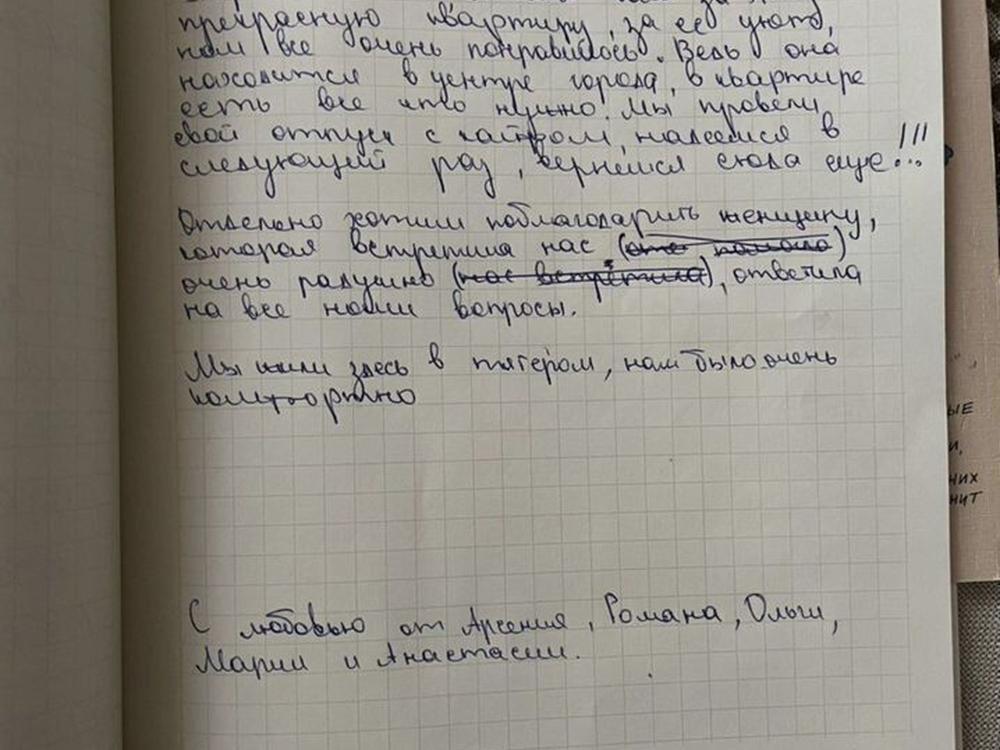 прекрасную квартиру, за её уют,
нам все очень понравилось. Ведь она
находится в центре города, в квартире
есть все что нужно! Мы провели
свой отпуск с кайфом, надеемся в
следующий раз, вернёмся сюда еще!!!
Отдельно хотим поблагодарить женщину,
которая встретила нас (она помогла)
очень радушно (нас встретила), ответила
на все наши вопросы.
Мы жили здесь в пятером, нам было очень
комфортно
С любовью от Арсения, Романа, Ольги,
Марии и Анастасии.
ЫЕ
И,
НИХ
НИТ